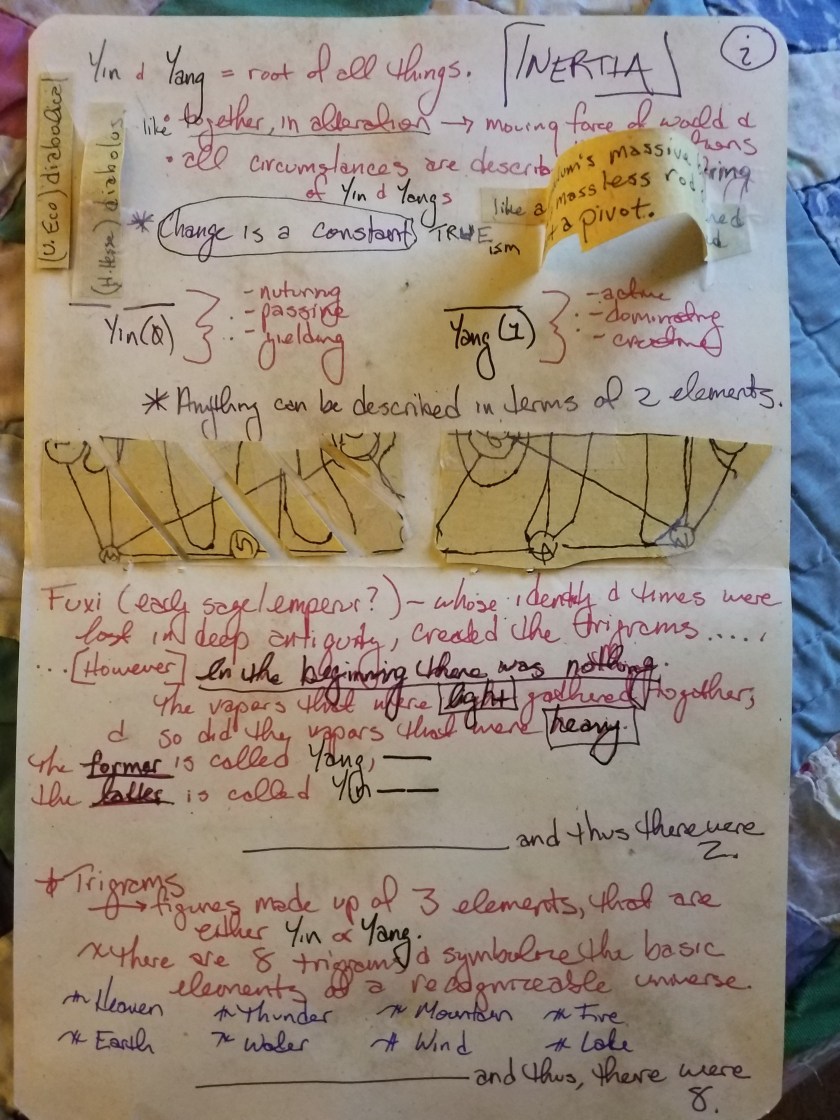 Yin & Yang = root of all things.
[INERTIA]
i
(U. Eco) diabolical
(H. Hesse) diabolus
like • together, in alteration → moving force of world &
• all circumstances are describ
of Yin & Yangs
um's massive string
like a massless rod
a pivot.
* Change is a constant TRUEism
Yin (0)
- nuturing
- passive
- yielding
Yang (1)
- active
- dominating
- creating
* Anything can be described in terms of 2 elements.
3 5
Fuxi (early sage/emperor?) – whose identity & times were
lost in deep antiquity, created the trigrams.....
...[However] In the beginning there was nothing.
The vapors that were light gathered together,
& so did the vapors that were heavy.
The former is called Yang, —
the latter is called Yin — —
and thus there were
2.
* Trigrams
→ figures made up of 3 elements, that are
either Yin or Yang.
* there are 8 trigrams & symbolize the basic
elements of a recognizeable universe.
* Heaven * Thunder * Mountain * Fire
* Earth * Water * Wind * Lake
and thus, there were
8.